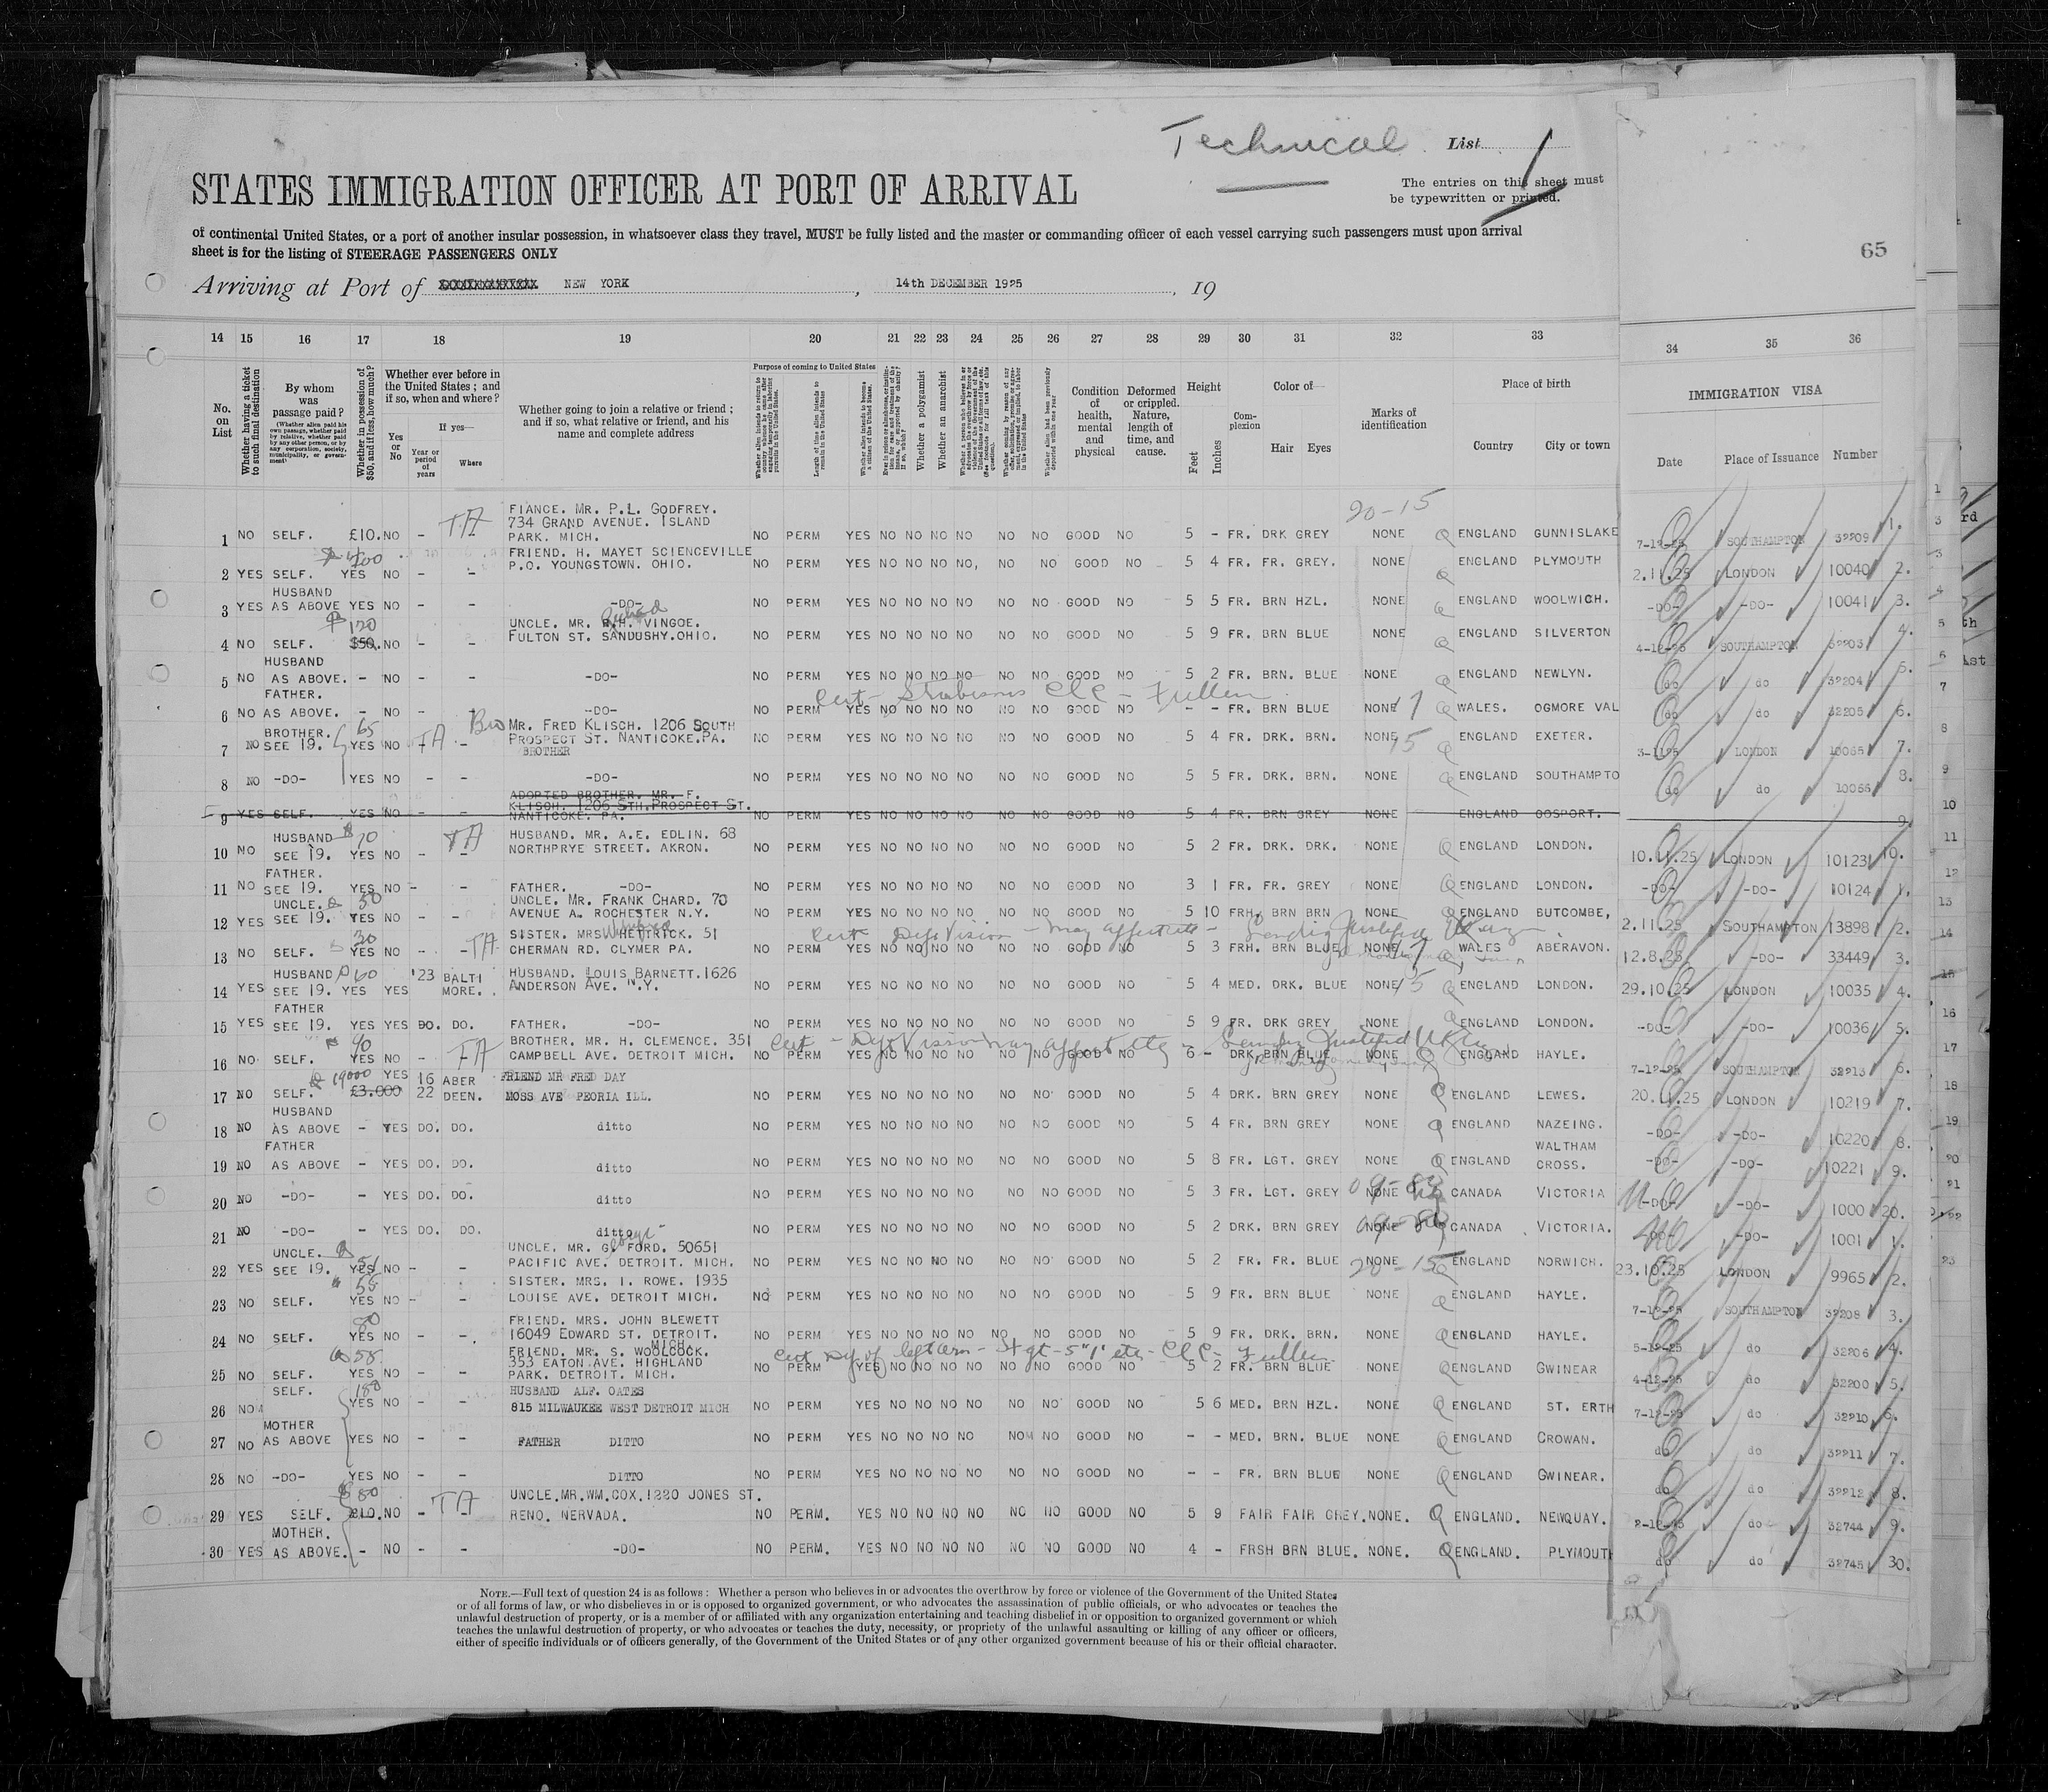 Technical List 1
STATES IMMIGRATION OFFICER AT PORT OF ARRIVAL
The entries on this sheet must
be typewritten or printed.
of continental United States, or a port of another insular possession, in whatsoever class they travel, MUST be fully listed and the master or commanding officer of each vessel carrying such passengers must upon arrival
sheet is for the listing of STEERAGE PASSENGERS ONLY
65
Arriving at Port of NEW YORK, 14th DECEMBER 1925, 19
14 15 16 17 18 19 20 21 22 23 24 25 26 27 28 29 30 31 32 33 34 35 36
No. on List
Whether having a ticket to such final destination
By whom was passage paid?
(Whether alien paid his own passage, whether paid by relative, whether paid by any other person, or by any corporation, society, municipality, or government)
Whether in possession of $50, and if less, how much?
Whether ever before in the United States; and if so, when and where?
Yes or No
If yes—
Year or period of years
Where
Whether going to join a relative or friend; and if so, what relative or friend, and his name and complete address
Purpose of coming to United States
Length of time alien intends to remain in the United States
Whether alien intends to become a citizen of the United States.
Whether a polygamist
Whether an anarchist
Condition of health, mental and physical
Deformed or crippled. Nature, length of time, and cause.
Height
Feet
Inches
Complexion
Color of—
Hair Eyes
Marks of identification
Place of birth
Country City or town
IMMIGRATION VISA
Date Place of Issuance Number
20-15
FIANCE. MR. P.L. GODFREY.
734 GRAND AVENUE. ISLAND
1 NO SELF. £10. NO - TA PARK. MICH. NO PERM YES NO NO NO NO NO NO GOOD NO 5 - FR. DRK GREY NONE ENGLAND GUNNISLAKE 7-12-25 SOUTHAMPTON 32209 1.
FRIEND. H. MAYET SCIENCEVILLE
P.O. YOUNGSTOWN. OHIO.
2 YES SELF. YES NO - - NO PERM YES NO NO NO NO, NO NO GOOD NO 5 4 FR. FR. GREY. NONE ENGLAND PLYMOUTH 2.11.25 LONDON 10040 2.
HUSBAND
3 YES AS ABOVE YES NO - - -DO- NO PERM YES NO NO NO NO NO NO GOOD NO 5 5 FR. BRN HZL. NONE ENGLAND WOOLWICH. -DO- -DO- 10041 3.
120
UNCLE. MR. VINGOE.
4 NO SELF. $50. NO - - FULTON ST. SANDUSHY.OHIO. NO PERM YES NO NO NO NO NO NO GOOD NO 5 9 FR. BRN BLUE NONE ENGLAND SILVERTON 4-12-25 SOUTHAMPTON 32203 4.
HUSBAND
5 NO AS ABOVE. - NO - - -DO- NO PERM YES NO NO NO NO NO NO GOOD NO 5 2 FR. BRN. BLUE NONE ENGLAND NEWLYN. do do 32204 5.
Cert - Strabismus - Fullen
FATHER.
6 NO AS ABOVE. - NO - - -DO- NO PERM YES NO NO NO NO NO NO GOOD NO - - FR. BRN BLUE NONE WALES. OGMORE VAL do do 32205 6.
BROTHER. 65 Bro MR. FRED KLISCH. 1206 SOUTH
7 NO SEE 19. YES NO TA - PROSPECT ST. NANTICOKE.PA. NO PERM YES NO NO NO NO NO NO GOOD NO 5 4 FR. DRK. BRN. NONE ENGLAND EXETER. 3-11-25 LONDON 10065 7.
BROTHER
8 NO -DO- YES NO - - -DO- NO PERM YES NO NO NO NO NO NO GOOD NO 5 5 FR. DRK. BRN. NONE ENGLAND SOUTHAMPTO do do 10066 8.
ADOPTED BROTHER. MR. F.
KLISCH. 1206 STH.PROSPECT ST.
9 YES SELF. YES NO - - NANTICOKE. PA. NO PERM YES NO NO NO NO NO NO GOOD NO 5 4 FR. BRN GREY NONE ENGLAND GOSPORT. 9.
HUSBAND 70 TA HUSBAND. MR. A.E. EDLIN. 68
10 NO SEE 19. YES NO - - NORTHPRYE STREET. AKRON. NO PERM YES NO NO NO NO NO NO GOOD NO 5 2 FR. DRK. DRK. NONE ENGLAND LONDON. 10.11.25 LONDON 10123 10.
FATHER.
11 NO SEE 19. YES NO - - FATHER. -DO- NO PERM YES NO NO NO NO NO NO GOOD NO 3 1 FR. FR. GREY NONE ENGLAND LONDON. -DO- -DO- 10124 1.
UNCLE. 50 UNCLE. MR. FRANK CHARD. 70
12 YES SEE 19. YES NO - - AVENUE A. ROCHESTER N.Y. NO PERM YES NO NO NO NO NO NO GOOD NO 5 10 FRH. BRN BRN NONE ENGLAND BUTCOMBE, 2.11.25 SOUTHAMPTON 13898 2.
Cert Def Vision - may affect
30 SISTER. MRS WHETRICK. 51
13 NO SELF. YES NO - - TA CHERMAN RD. CLYMER PA. NO PERM YES NO NO NO NO NO NO GOOD NO 5 3 FRH. BRN BLUE NONE WALES ABERAVON. 12.8.25 -DO- 33449 3.
HUSBAND 60 '23 BALTI HUSBAND. LOUIS BARNETT.1626
14 YES SEE 19. YES YES MORE. ANDERSON AVE. N.Y. NO PERM YES NO NO NO NO NO NO GOOD NO 5 4 MED. DRK. BLUE NONE ENGLAND LONDON. 29.10.25 LONDON 10035 4.
FATHER
15 YES SEE 19. YES YES DO. DO. FATHER. -DO- NO PERM YES NO NO NO NO NO NO GOOD NO 5 9 FR. DRK GREY NONE ENGLAND LONDON. -DO- -DO- 10036 5.
Cert - Def Vision may affect
90 BROTHER. MR. H. CLEMENCE. 351
16 NO. SELF. YES NO - TA CAMPBELL AVE. DETROIT MICH. NO PERM YES NO NO NO NO NO NO GOOD NO 6 - DRK BRN BLUE NONE ENGLAND HAYLE. 7-12-25 SOUTHAMPTON 32213 6.
19000 YES 16 ABER FRIEND MR FRED DAY
17 NO SELF. £3.000 22 DEEN. MOSS AVE PEORIA ILL. NO PERM YES NO NO NO NO NO NO GOOD NO 5 4 DRK. BRN GREY NONE ENGLAND LEWES. 20.11.25 LONDON 10219 7.
HUSBAND
18 NO AS ABOVE - YES DO. DO. ditto NO PERM YES NO NO NO NO NO NO GOOD NO 5 4 FR. BRN GREY NONE ENGLAND NAZEING. -DO- -DO- 10220 8.
FATHER WALTHAM
19 NO AS ABOVE - YES DO. DO. ditto NO PERM YES NO NO NO NO NO NO GOOD NO 5 8 FR. LGT. GREY NONE ENGLAND CROSS. -DO- -DO- 10221 9.
20 NO -DO- - YES DO. DO. ditto NO PERM YES NO NO NO NO NO NO GOOD NO 5 3 FR. LGT. GREY NONE CANADA VICTORIA -DO- -DO- 1000 20.
21 NO -DO- - YES DO. DO. ditto NO PERM YES NO NO NO NO NO NO GOOD NO 5 2 DRK. BRN GREY NONE CANADA VICTORIA. -DO- -DO- 1001 1.
UNCLE. UNCLE. MR. G. FORD. 50651
22 YES SEE 19. YES NO - - PACIFIC AVE. DETROIT. MICH. NO PERM YES NO NO NO NO NO NO GOOD NO 5 2 FR. FR. BLUE NONE ENGLAND NORWICH. 23.10.25 LONDON 9965 2.
20-15
55 SISTER. MRS. I. ROWE. 1935
23 NO SELF. YES NO - - LOUISE AVE. DETROIT MICH. NO PERM YES NO NO NO NO NO NO GOOD NO 5 9 FR. BRN BLUE NONE ENGLAND HAYLE. 7-12-25 SOUTHAMPTON 32208 3.
80 FRIEND. MRS. JOHN BLEWETT
24 NO SELF. YES NO - - 16049 EDWARD ST. DETROIT. MICH. NO PERM YES NO NO NO NO NO NO GOOD NO 5 9 FR. DRK. BRN. NONE ENGLAND HAYLE. 5-12-25 do 32206 4.
Cert Def of left arm - Fullen
58 FRIEND. MR. S. WOOLCOCK.
353 EATON AVE. HIGHLAND
25 NO SELF. YES NO - - PARK. DETROIT. MICH. NO PERM YES NO NO NO NO NO NO GOOD NO 5 2 FR. BRN BLUE NONE ENGLAND GWINEAR 4-12-25 do 32200 5.
SELF. 180 HUSBAND ALF. OATES
26 NO YES NO - - 815 MILWAUKEE WEST DETROIT MICH NO PERM YES NO NO NO NO NO NO GOOD NO 5 6 MED. BRN HZL. NONE ENGLAND ST. ERTH 7-12-25 do 32210 6.
MOTHER
27 NO AS ABOVE YES NO - - FATHER DITTO NO PERM YES NO NO NO NO NO NO GOOD NO - - MED. BRN. BLUE NONE ENGLAND CROWAN. do do 32211 7.
28 NO -DO- YES NO - - DITTO NO PERM YES NO NO NO NO NO NO GOOD NO - - FR. BRN BLUE NONE ENGLAND GWINEAR. do do 32212 8.
80 UNCLE.MR.WM.COX.1220 JONES ST.
29 YES SELF. £10. NO - TA RENO. NERVADA. NO PERM. YES NO NO NO NO NO NO GOOD NO 5 9 FAIR FAIR GREY. NONE. ENGLAND. NEWQUAY. 2-12-25 do 32744 9.
MOTHER.
30 YES AS ABOVE. - NO - - -DO- NO PERM. YES NO NO NO NO NO NO GOOD NO 4 - FRSH BRN BLUE. NONE. ENGLAND. PLYMOUTH do do 32745 30.
NOTE.—Full text of question 24 is as follows: Whether a person who believes in or advocates the overthrow by force or violence of the Government of the United States
or of all forms of law, or who disbelieves in or is opposed to organized government, or who advocates the assassination of public officials, or who advocates or teaches the
unlawful destruction of property, or is a member of or affiliated with any organization entertaining and teaching disbelief in or opposition to organized government or which
teaches the unlawful destruction of property, or who advocates or teaches the duty, necessity, or propriety of the unlawful assaulting or killing of any officer or officers,
either of specific individuals or of officers generally, of the Government of the United States or of any other organized government because of his or their official character.